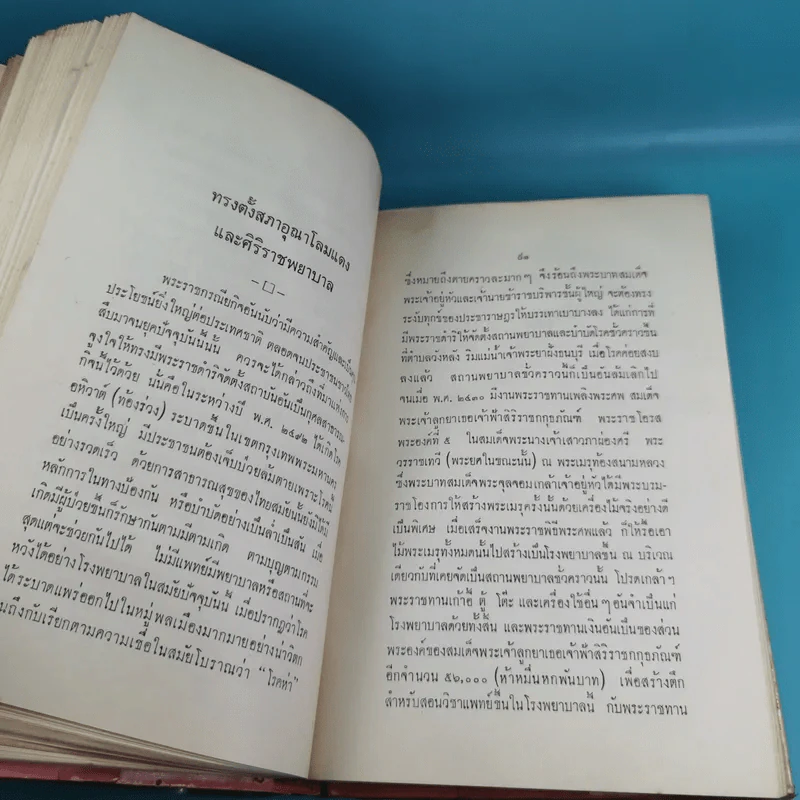 ทรงตั้งสภาอุณาโลมแดง
และศิริราชพยาบาล
— □ —
พระราชกรณียกิจอันนับว่ามีความสำคัญและเป็น
ประโยชน์ยิ่งใหญ่ต่อประเทศชาติ ตลอดจนประชาชนชาวไทย
สืบมาจนยุคปัจจุบันนี้นั้น ควรจะได้กล่าวถึงที่มาแห่ง
จูงใจให้ทรงมีพระราชดำริจัดตั้งสถาบันอันเป็นกุศลสาธารณะ
กิจนี้ไว้ด้วย นั้นคือในระหว่างปี พ.ศ. ๒๔๙๒ ได้เกิดโรค
อหิวาต์ (ท้องร่วง) ระบาดขึ้นในเขตกรุงเทพพระมหานคร
เป็นครั้งใหญ่ มีประชาชนต้องเจ็บป่วยล้มตายเพราะโรคนี้
อย่างรวดเร็ว ด้วยการสาธารณสุขของไทยสมัยนั้นยังมิได้มี
หลักการในทางป้องกัน หรือบำบัดอย่างเป็นล่ำเป็นสัน เมื่อ
เกิดมีผู้ป่วยขึ้นก็รักษากันตามมีตามเกิด ตามบุญตามกรรม
สุดแต่จะช่วยกันไปได้ ไม่มีแพทย์มีพยาบาลหรือสถานที่จะ
หวังได้อย่างโรงพยาบาลในสมัยปัจจุบันนี้ เมื่อปรากฏว่าโรค
ได้ระบาดแพร่ออกไปในหมู่พลเมืองมากมายอย่างน่าวิตก
นถึงกับเรียกตามความเชื่อในสมัยโบราณว่า “โรคห่า”
๘๑
ซึ่งหมายถึงตายคราวละมาก ๆ จึงร้อนถึงพระบาทสมเด็จ
พระเจ้าอยู่หัวและเจ้านายข้าราชบริพารชั้นผู้ใหญ่ จะต้องทรง
ระงับทุกข์ของประชาราษฎรให้บรรเทาเบาบางลง ได้แก่การที่
มีพระราชดำริให้จัดตั้งสถานพยาบาลและบำบัดโรคชั่วคราวขึ้น
ที่ตำบลวังหลัง ริมแม่น้ำเจ้าพระยาฝั่งธนบุรี เมื่อโรคค่อยสงบ
ลงแล้ว สถานพยาบาลชั่วคราวนี้ก็เป็นอันล้มเลิกไป
จนเมื่อ พ.ศ. ๒๔๓๐ มีงานพระราชทานเพลิงพระศพ สมเด็จ
พระเจ้าลูกยาเธอเจ้าฟ้าสิริราชกกุธภัณฑ์ พระราชโอรส
พระองค์ที่ ๕ ในสมเด็จพระนางเจ้าเสาวภาผ่องศรี พระ
วรราชเทวี (พระยศในขณะนั้น) ณ พระเมรุท้องสนามหลวง
ซึ่งพระบาทสมเด็จพระจุลจอมเกล้าเจ้าอยู่หัวได้มีพระบรม-
ราชโองการให้สร้างพระเมรุครั้งนั้นด้วยเครื่องไม้จริงอย่างดี
เป็นพิเศษ เมื่อเสร็จงานพระราชพิธีพระศพแล้ว ก็ให้รื้อเอา
ไม้พระเมรุทั้งหมดนั้นไปสร้างเป็นโรงพยาบาลขึ้น ณ บริเวณ
เดียวกับที่เคยจัดเป็นสถานพยาบาลชั่วคราวนั้น โปรดเกล้า ฯ
พระราชทานเก้าอี้ ตู้ โต๊ะ และเครื่องใช้อื่น ๆ อันจำเป็นแก่
โรงพยาบาลด้วยทั้งสิ้น และพระราชทานเงินอันเป็นของส่วน
พระองค์ของสมเด็จพระเจ้าลูกยาเธอเจ้าฟ้าสิริราชกกุธภัณฑ์
อีกจำนวน ๕๖,๐๐๐ (ห้าหมื่นหกพันบาท) เพื่อสร้างตึก
สำหรับสอนวิชาแพทย์ขึ้นในโรงพยาบาลนี้ กับพระราชทาน